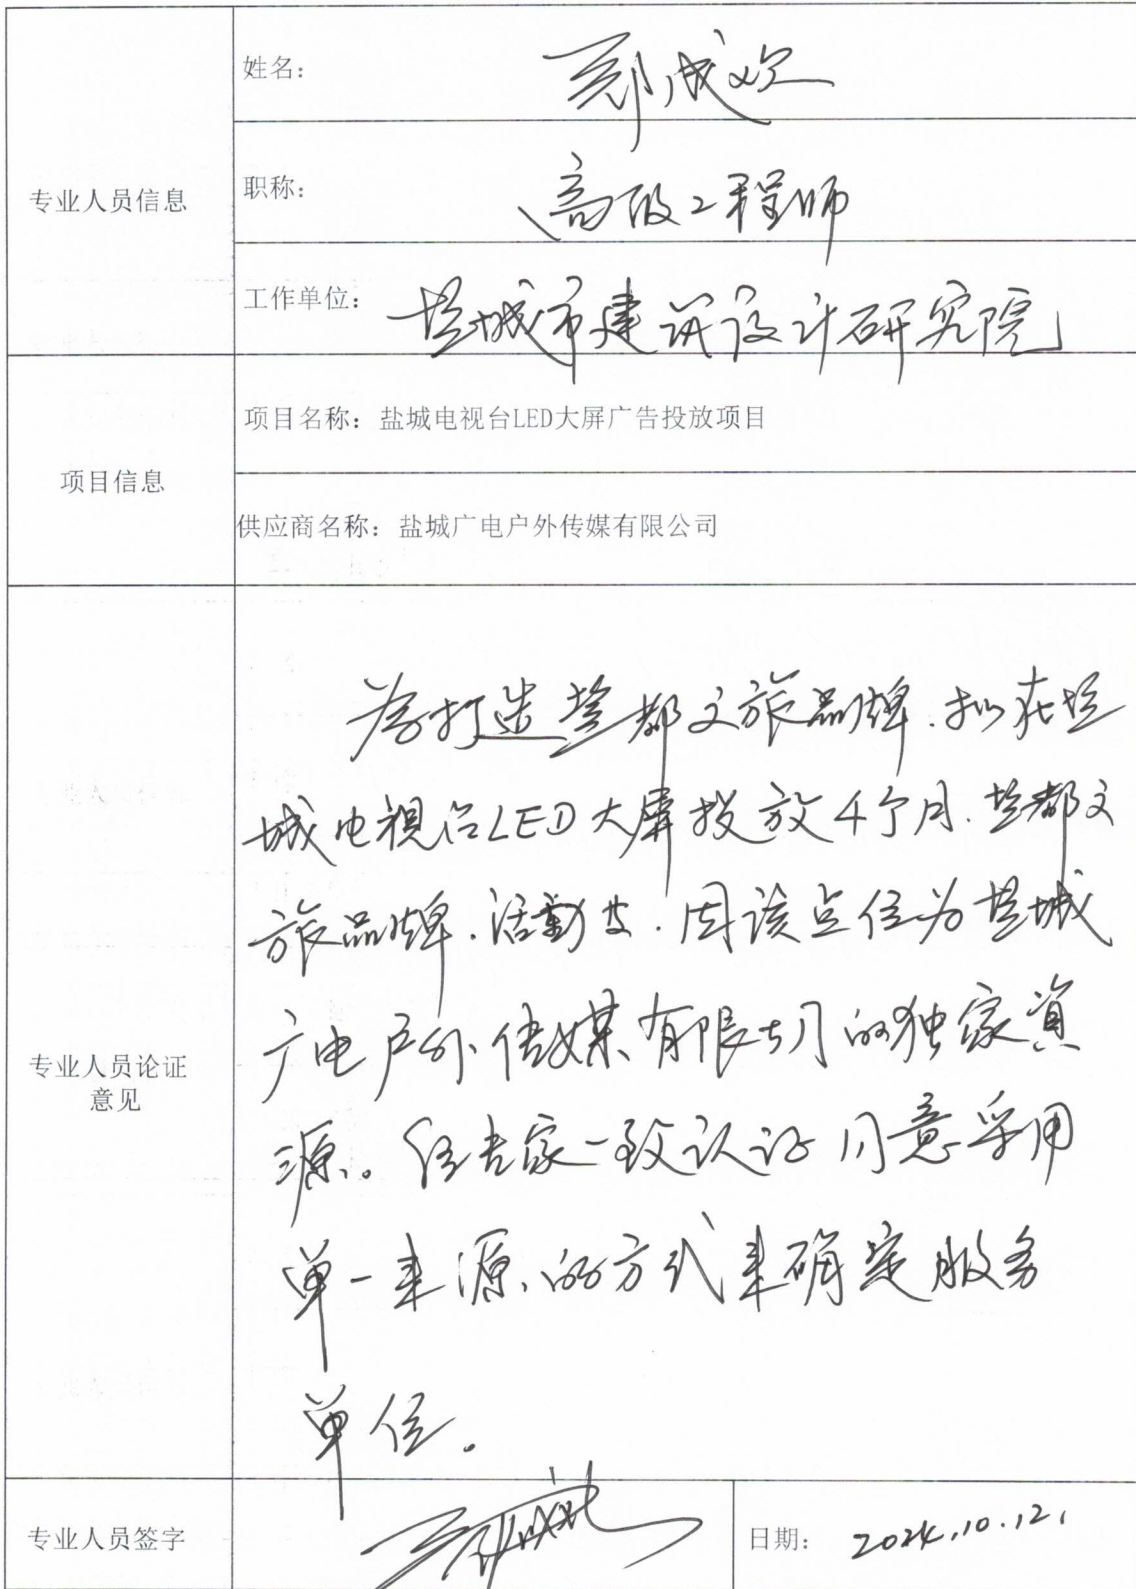 姓名： 郑成欢
专业人员信息
职称： 高级工程师
工作单位： 盐城市建筑设计研究院
项目信息
项目名称：盐城电视台LED大屏广告投放项目
供应商名称：盐城广电户外传媒有限公司
专业人员论证
意见
为打造盐都文旅品牌.拟在盐
城电视台LED大屏投放4个月.盐都文
旅品牌.活动等.因该点位为盐城
广电户外传媒有限公司的独家资
源。经专家一致认证同意采用
单一来源的方式来确定服务
单位.
专业人员签字
日期： 2024.10.12.